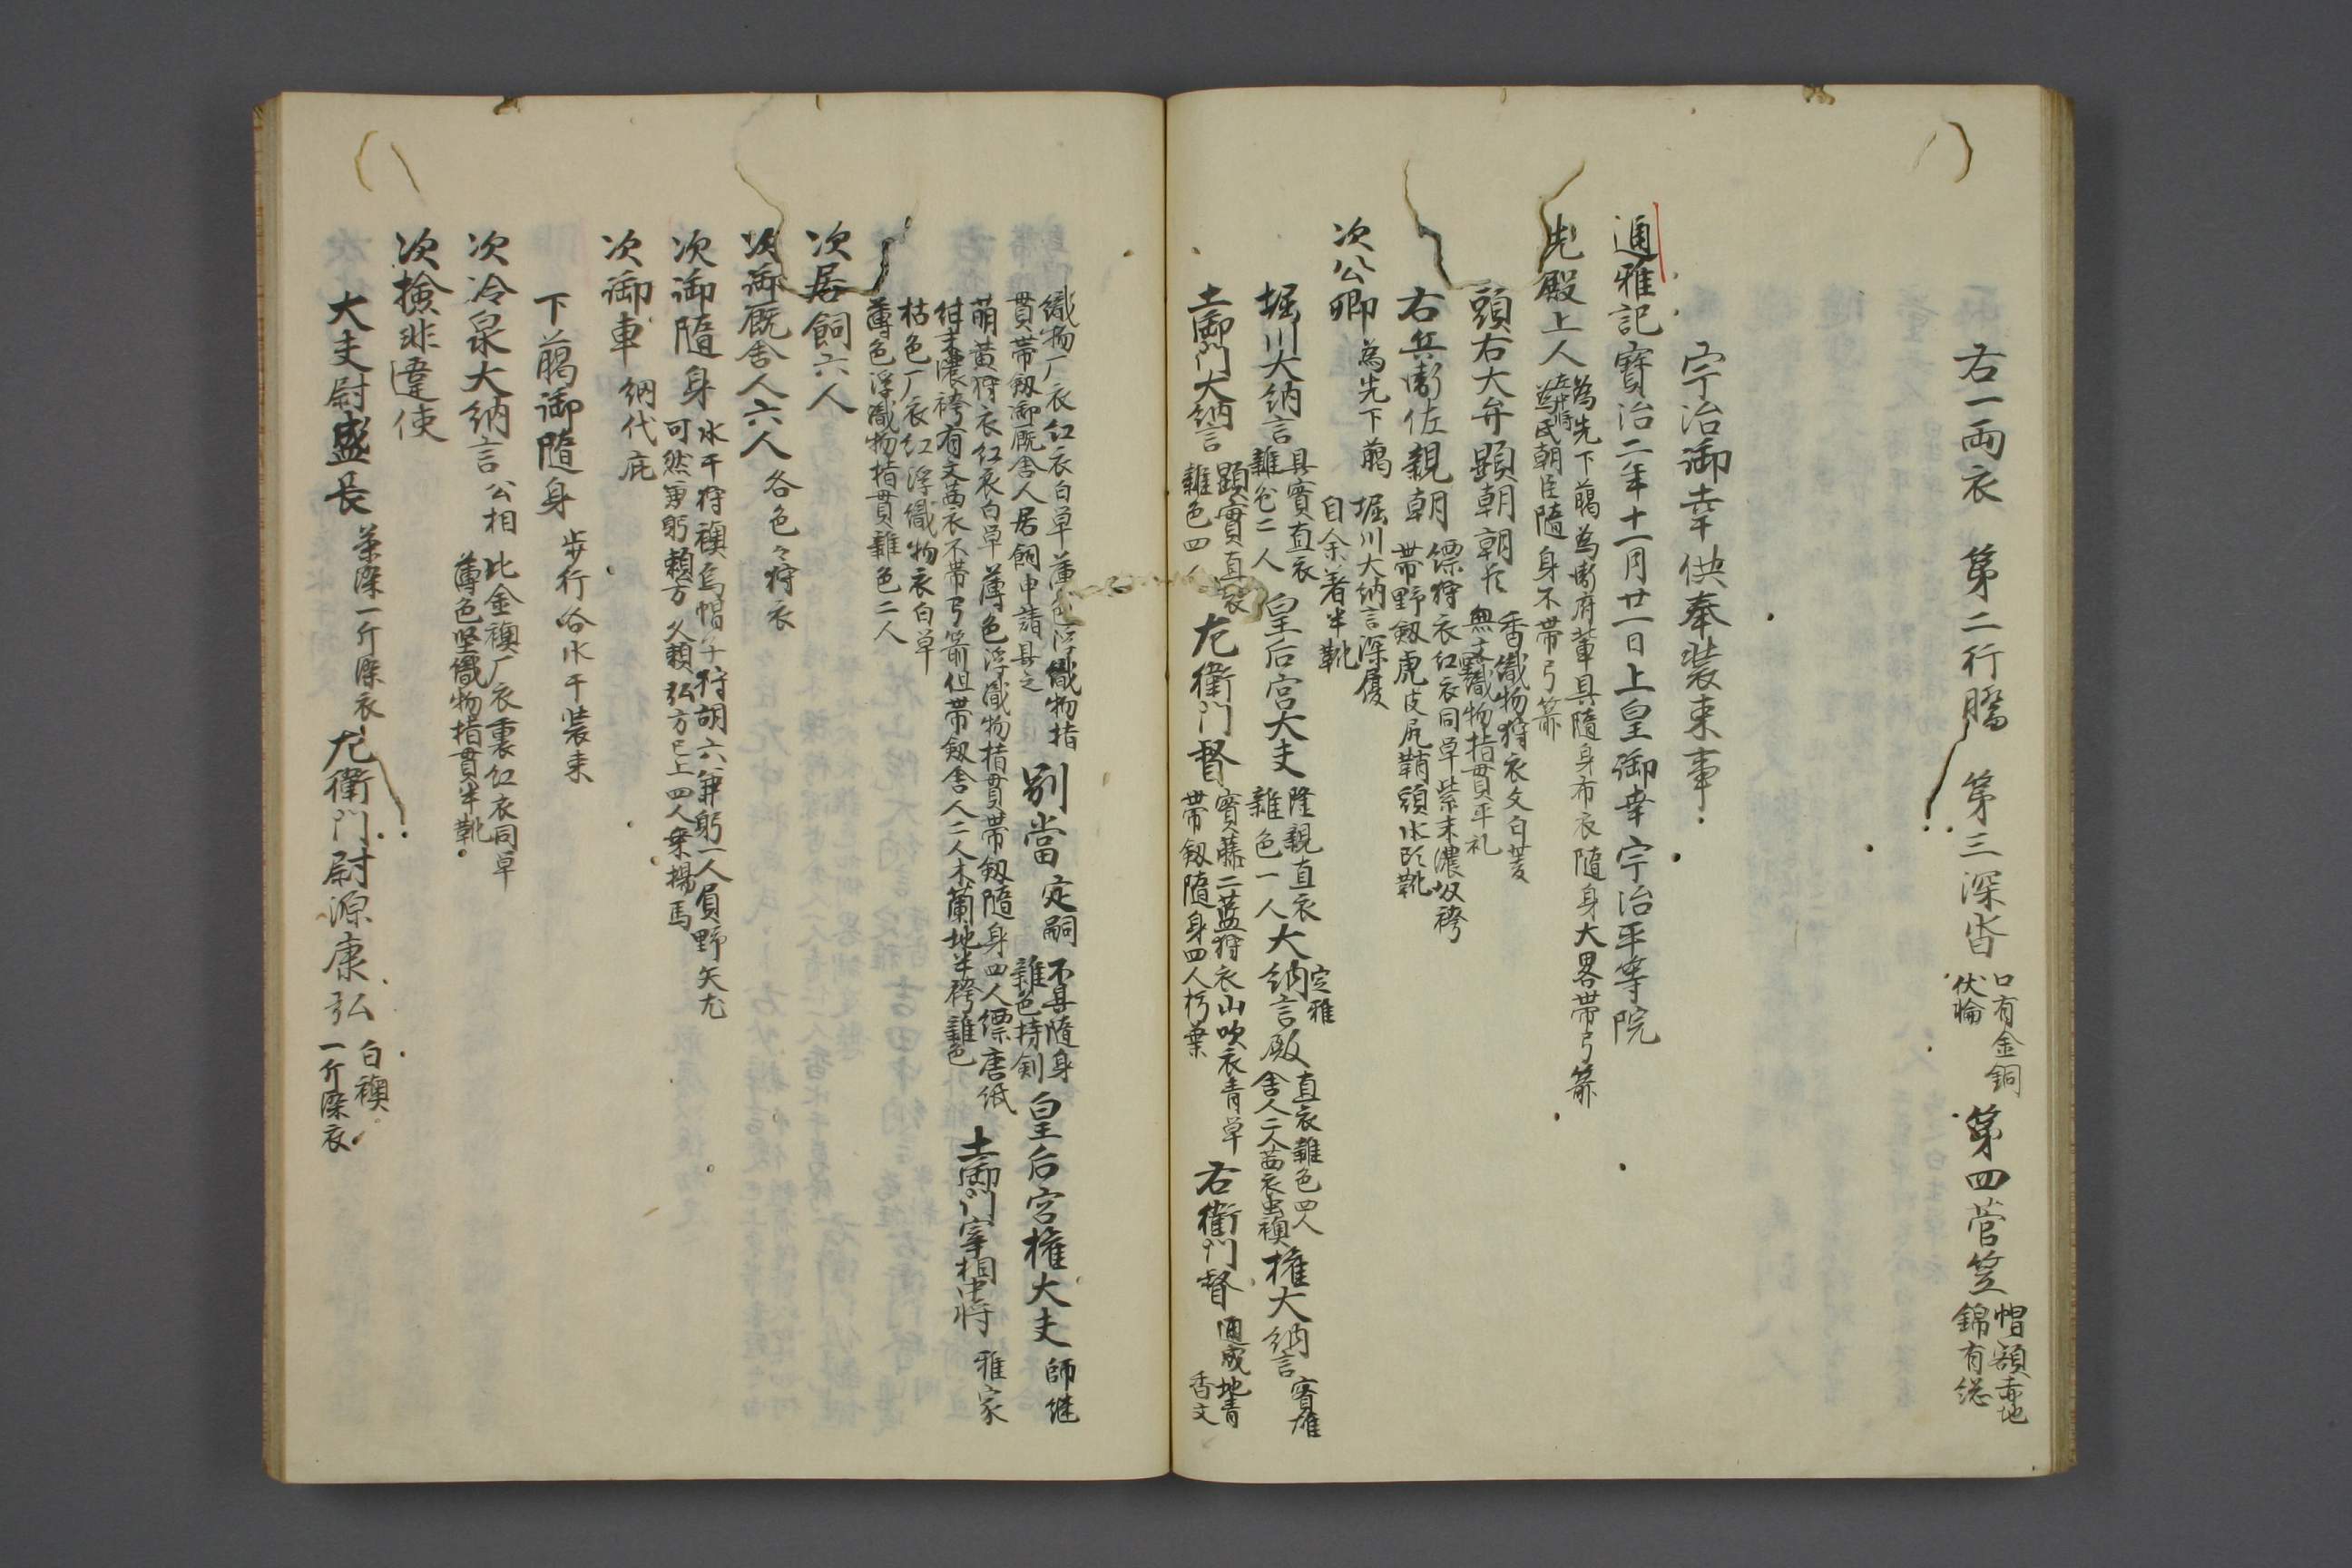 右一両衣 第二行騰 第三深沓 口有金銅伏輪 第四菅笠 帽額赤地錦有総
宇治御幸供奉装束事
通雅記寳治二年十一月廿一日上皇御幸宇治平等院
先殿上人 為先下﨟為衛府輩具隨身布衣隨身大畧帯弓箭 朝臣隨身不帯弓箭
頭右大弁顕朝朝臣 香織物狩衣文白菱 無文織物指貫平礼
右兵衛佐親朝 縹狩衣紅衣同単紫末濃奴袴 帯野釼虎皮尻鞘頭水 靴
次公卿 為先下﨟 堀川大納言深履 自余著半靴
堀川大納言 具實直衣 雑色二人 皇后宮大夫 隆親直衣 雑色一人 大納言殿 定雅 直衣雑色四人 舎人二人茜衣 襖 権大納言 實雄
土御門大納言 顕實直衣 雑色四人 左衛門督 實藤二藍狩衣山吹衣青単 帯釼隨身四人朽葉 右衛門督 通成地青 香文
織物厂衣紅衣白単薄色浮織物指 貫帯釼御厩舎人居飼申請具之 別當 定嗣 不具隨身 雑色持剣 皇后宮権大夫 師継
萌黄狩衣紅衣白単薄色浮織物指貫帯釼隨身四人縹唐紙 紺末濃袴有文茜衣不帯弓箭但帯釼舎人二人木蘭地半袴雑色 土御門宰相中将 雅家
枯色厂衣紅浮織物衣白単 薄色浮織物指貫雑色二人
次居飼六人
次御厩舎人六人 各色々狩衣
次御隨身 水干狩襖烏帽子狩胡六兼躬一人負野矢左 可然 兼躬頼方久頼弘方已上四人乗揚馬
次御車 網代庇
下﨟御隨身 歩行各水干装束
次冷泉大納言 公相 比金襖厂衣裏紅衣同単 薄色堅織物指貫半靴
次撿非違使
大夫尉盛長 茶染一斤染衣 左衛門尉源康弘 白襖 一斤染衣